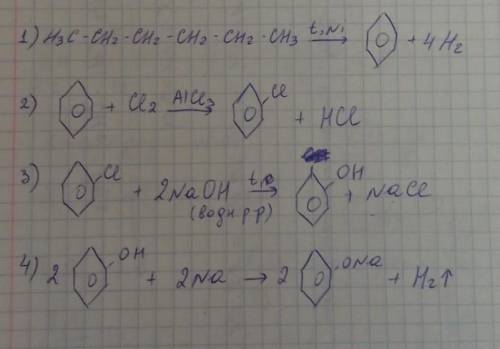 1) H3C-CH2-CH2-CH2-CH2-CH3 t, Ni → + 4H2
2) + Cl2 AlCl3 → Cl + HCl
3) Cl + 2NaOH (водн р-р) t → OH + NaCl
4) 2 OH + 2Na → 2 ONa + H2↑